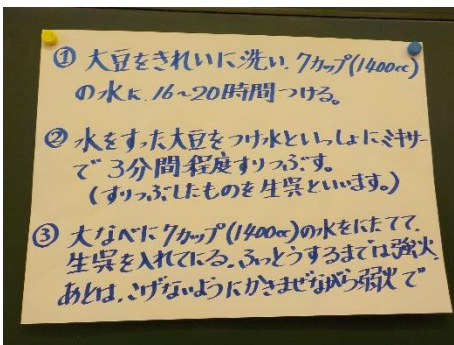 ① 大豆をきれいに洗い、7カップ(1400cc)
の水に、16~20時間つける。
② 水をすった大豆をつけ水といっしょにミキサー
で3分間程度すりつぶす。
(すりつぶしたものを生呉といいます。)
③ 大なべに7カップ(1400cc)の水をにたてて、
生呉を入れてにる。ふっとうするまでは強火、
あとは、こげないようにかきまぜながら弱火で